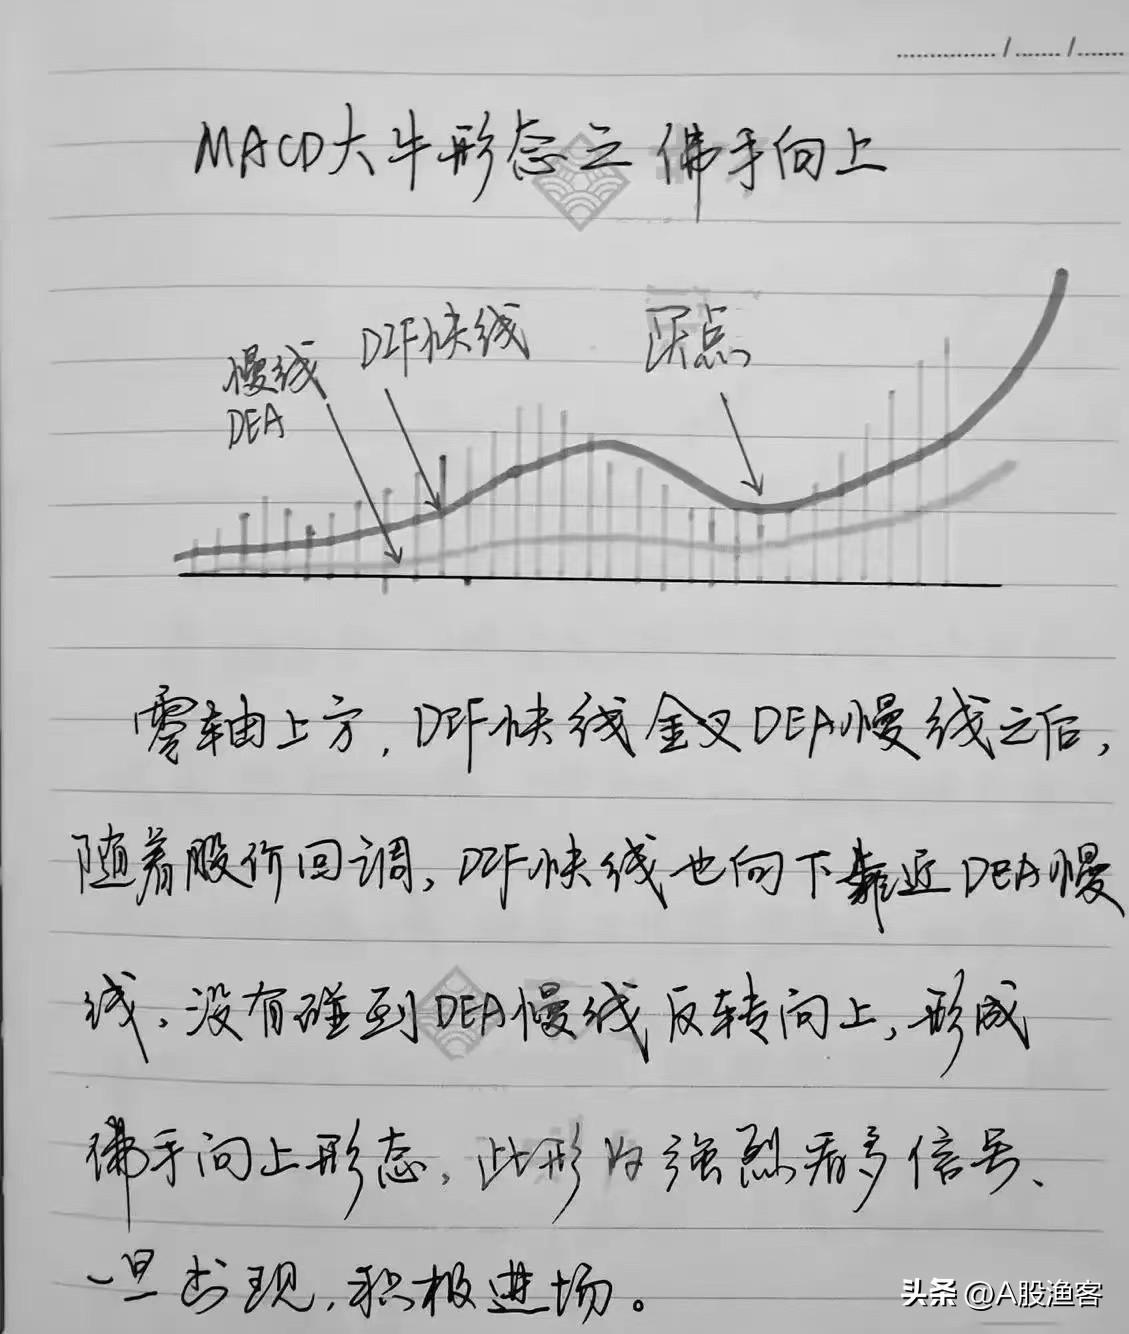 MACD大牛形态之佛手向上
DIF快线
买点
慢线
DEA
零轴上方，DIF快线金叉DEA慢线之后，
随着股价回调，DIF快线也向下靠近DEA慢
线，没有碰到DEA慢线反转向上，形成
佛手向上形态，此形为强烈看多信号、
一旦出现，积极进场。
头条 @A股渔客